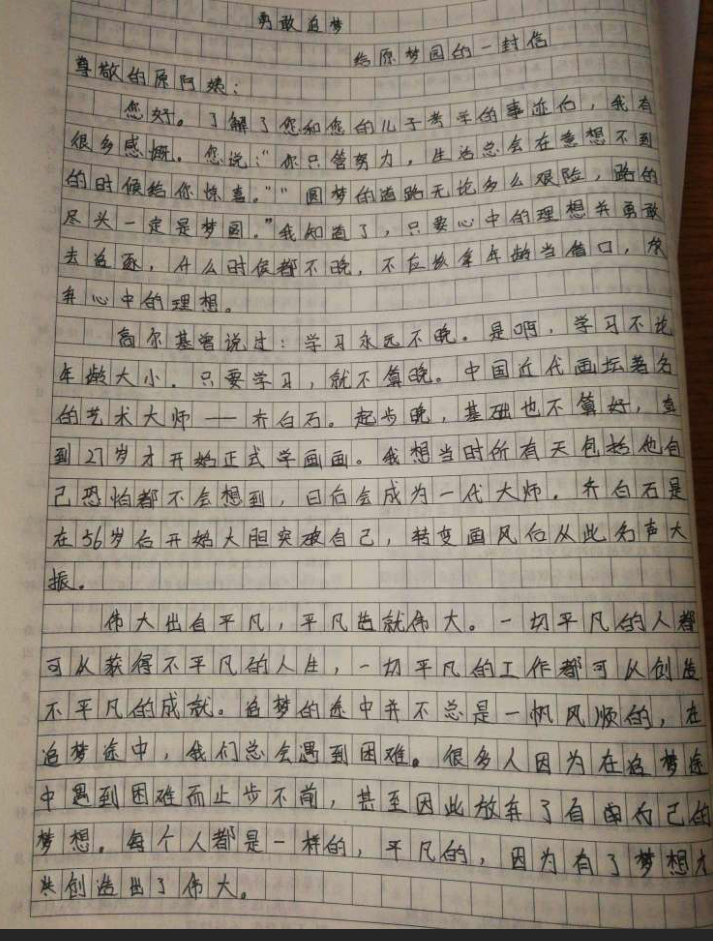 勇敢追梦
给原梦园的一封信
尊敬的原阿姨：
您好。了解了您和您的儿子考学的事迹后，我有
很多感慨。您说：“你只管努力，生活总会在意想不到
的时候给你惊喜。”“圆梦的道路无论多么艰险，路的
尽头一定是梦圆。”我知道了，只要心中的理想并勇敢
去追逐，什么时候都不晚，不应该拿年龄当借口，放
弃心中的理想。
高尔基曾说过：学习永远不晚。是啊，学习不论
年龄大小。只要学习，就不算晚。中国近代画坛著名
的艺术大师——齐白石。起步晚，基础也不算好，直
到27岁才开始正式学画画。我想当时所有天包括他自
己恐怕都不会想到，日后会成为一代大师。齐白石是
在56岁后开始大胆突破自己，转变画风后从此名声大
振。
伟大出自平凡，平凡造就伟大。一切平凡的人都
可以获得不平凡的人生，一切平凡的工作都可以创造
不平凡的成就。追梦的途中并不总是一帆风顺的，在
追梦途中，我们总会遇到困难。很多人因为在追梦途
中遇到困难而止步不前，甚至因此放弃了自己的
梦想。每个人都是一样的，平凡的，因为有了梦想才
创造出了伟大。